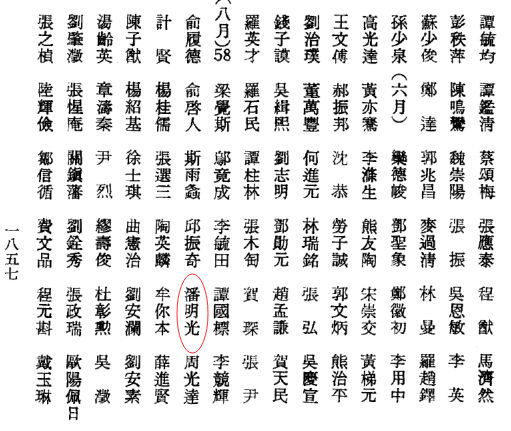 譚毓均 譚鑑清 蔡頌梅 張應泰 程猷 馬濟然
彭秩萍 陳鳴鸞 魏崇陽 張振 吳恩敏 李英
蘇少俊 鄭達 郭兆昌 麥過清 林曼 羅趙鐸
孫少泉 (六月) 樂德峻 鄧聖象 鄭徵初 李用中
高光達 黃亦騫 李滌生 熊友陶 宋崇交 黃梯元
王文傅 郝振邦 沈恭 勞子誠 郭文炳 熊治平
劉治璞 董萬豐 何進元 林瑞銘 張弘 吳慶宣
錢子謨 吳緝熙 劉志明 鄧勛元 趙孟謙 賀天民
羅英才 羅石民 譚柱林 張木匋 賀琛 張尹
(八月)58 梁覺斯 鄺竟成 李毓田 譚國標 李競輝
俞履德 俞啓人 斯雨螽 邱振奇 潘明光 周光達
計賢 楊桂儒 張選三 陶英麟 牟你本 薛進賢
陳子猷 楊紹基 徐士琪 曲憲治 劉安瀾 劉安素
湯齡英 章濤秦 尹烈 繆壽俊 杜彰勳 吳澂
劉肇澂 張惺庵 關鎮藩 劉銓秀 張政瑞 歐陽佩日
張之楨 陸輝儉 鄒信循 費文品 程元斟 戴玉琳
一八五七